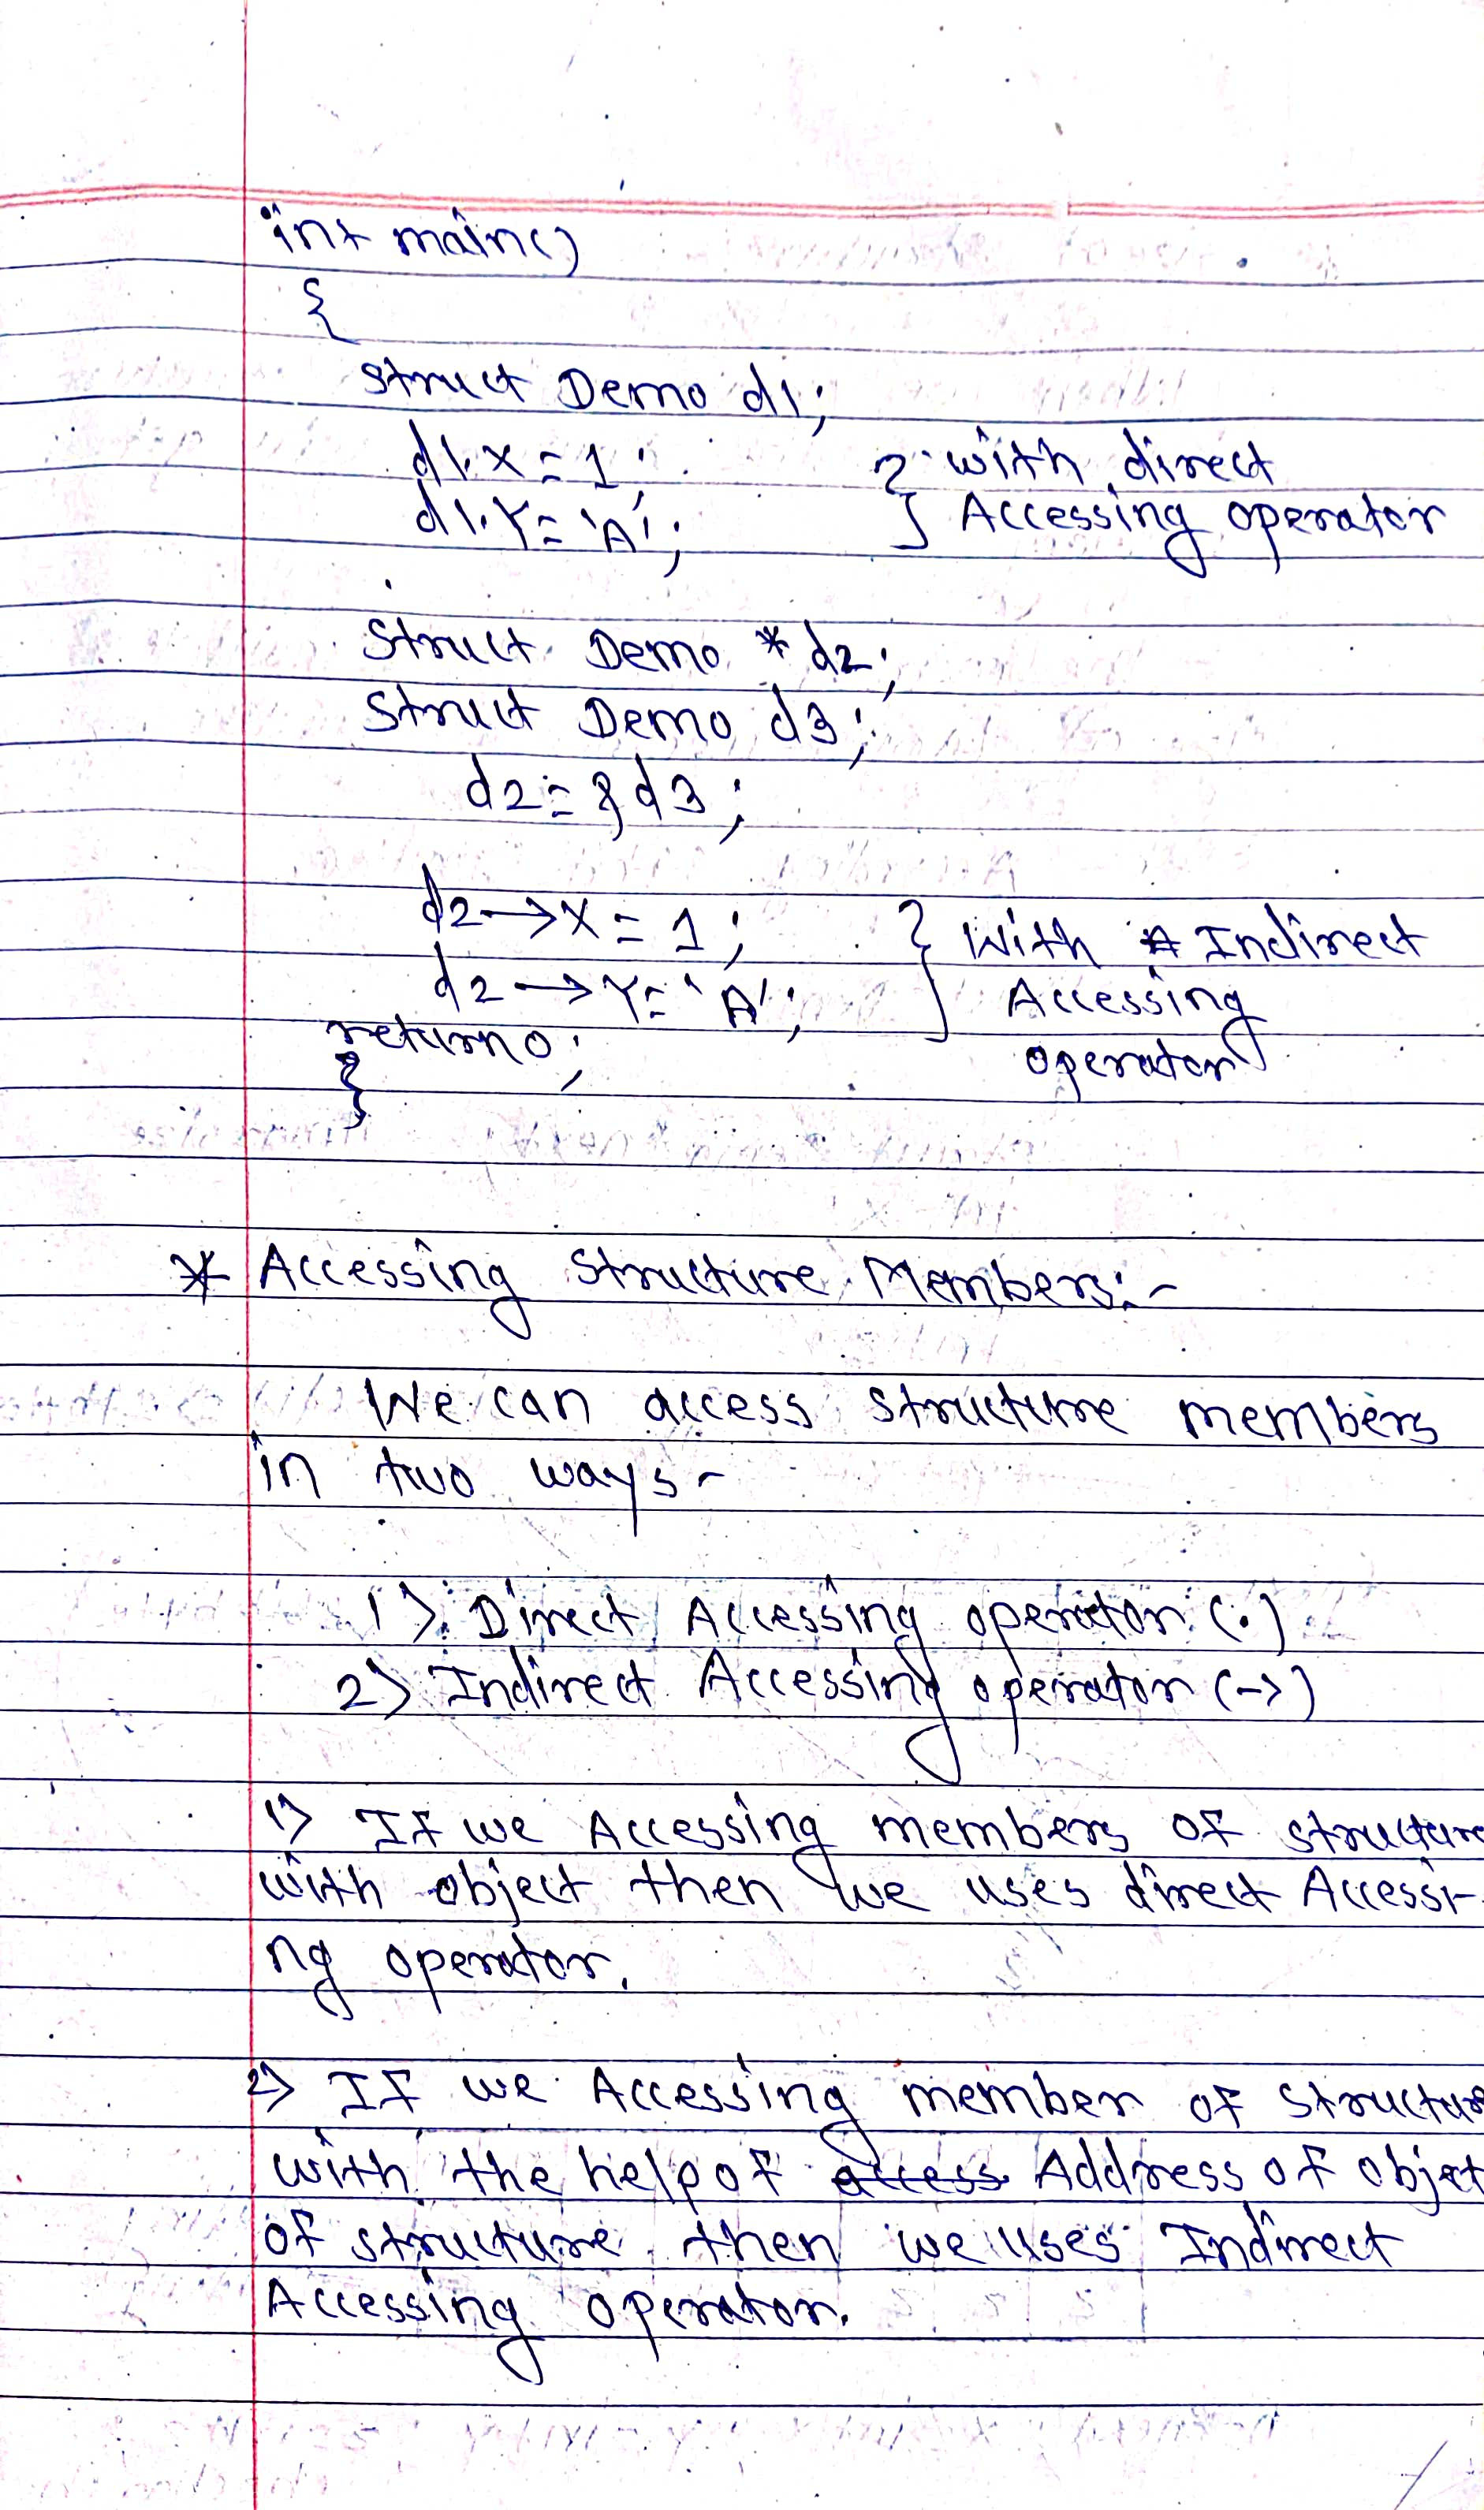 int main()
{
struct Demo d1;
d1.x = 1; } with direct
d1.Y = 'A'; Accessing operator
struct Demo *d2;
struct Demo d3;
d2 = &d3;
d2→x = 1; } with Indirect
d2→Y = 'A'; Accessing
return 0; operator
}
* Accessing structure Members:-
We can access structure members
in two ways-
1> Direct Accessing operator (.)
2> Indirect Accessing operator (->)
1> If we Accessing members of structure
with object then we uses direct Accessi-
ng operator.
2> If we Accessing member of structur
with the help of access Address of objet
of structure then we uses Indirect
Accessing operator.